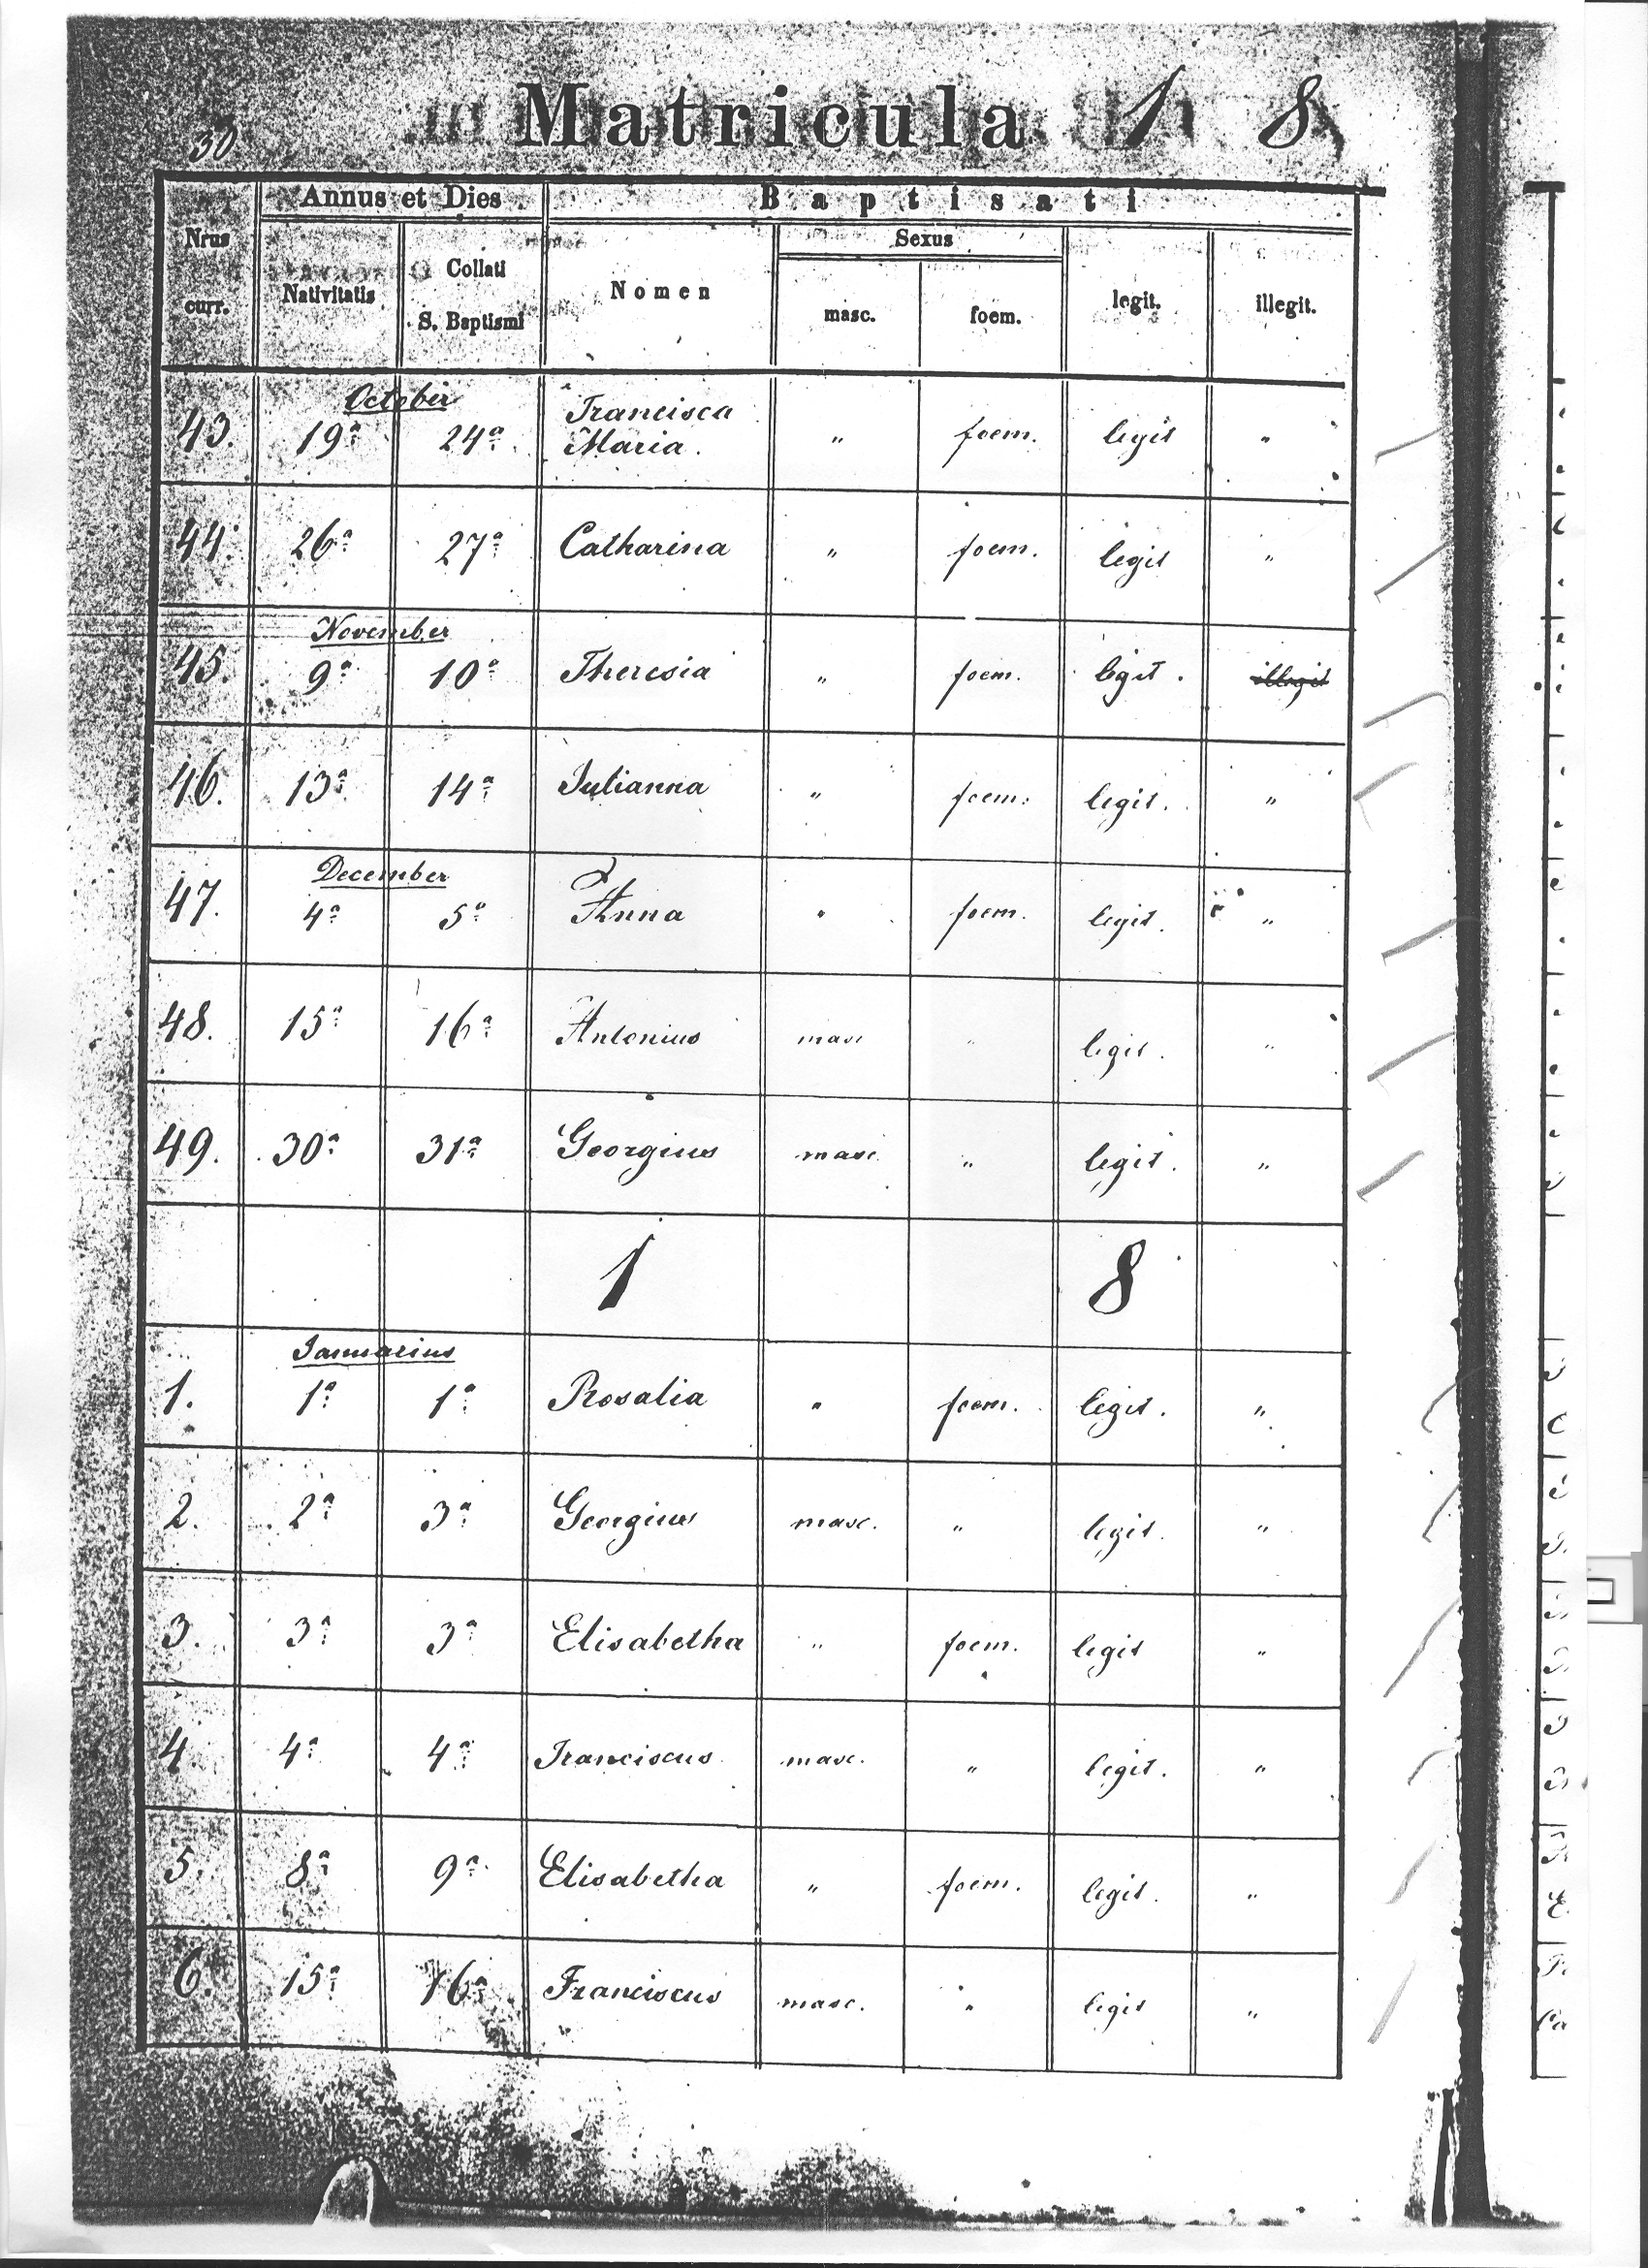 30
Matricula 1 8
Nrus curr.
Annus et Dies
Baptisati
Nativitatis
Collati S. Baptismi
Nomen
Sexus
masc.
foem.
legit.
illegit.
October
43. 19a 24a Francisca Maria. " foem. legit "
44. 26a 27a Catharina " foem. legit "
November
45. 9a 10a Theresia " foem. legit. illegit
46. 13a 14a Julianna " foem. legit. "
December
47. 4a 5a Anna " foem. legit. "
48. 15a 16a Antonius masc " legit. "
49. 30a 31a Georgius masc. " legit. "
1 8
Januarius
1. 1a 1a Rosalia " foem. legit. "
2. 2a 3a Georgius masc. " legit. "
3. 3a 3a Elisabetha " foem. legit "
4. 4a 4a Franciscus masc. " legit. "
5. 8a 9a Elisabetha " foem. legit. "
6. 15a 16a Franciscus masc. " legit "